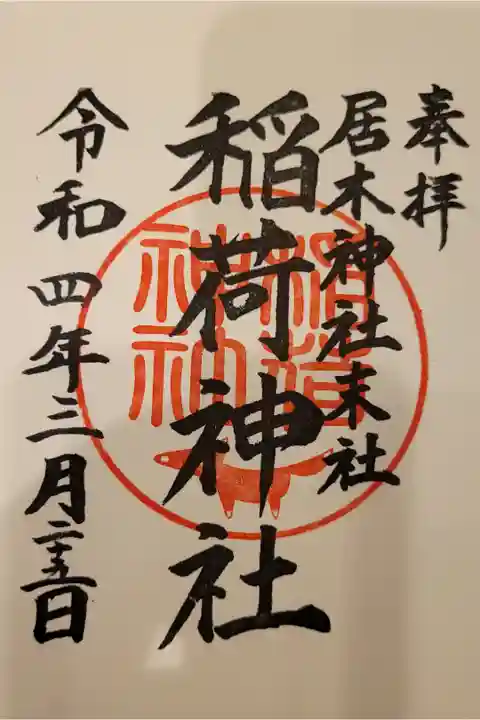 奉拝
居木神社末社
稲荷神社
令和四年三月二十五日
稲荷
神社